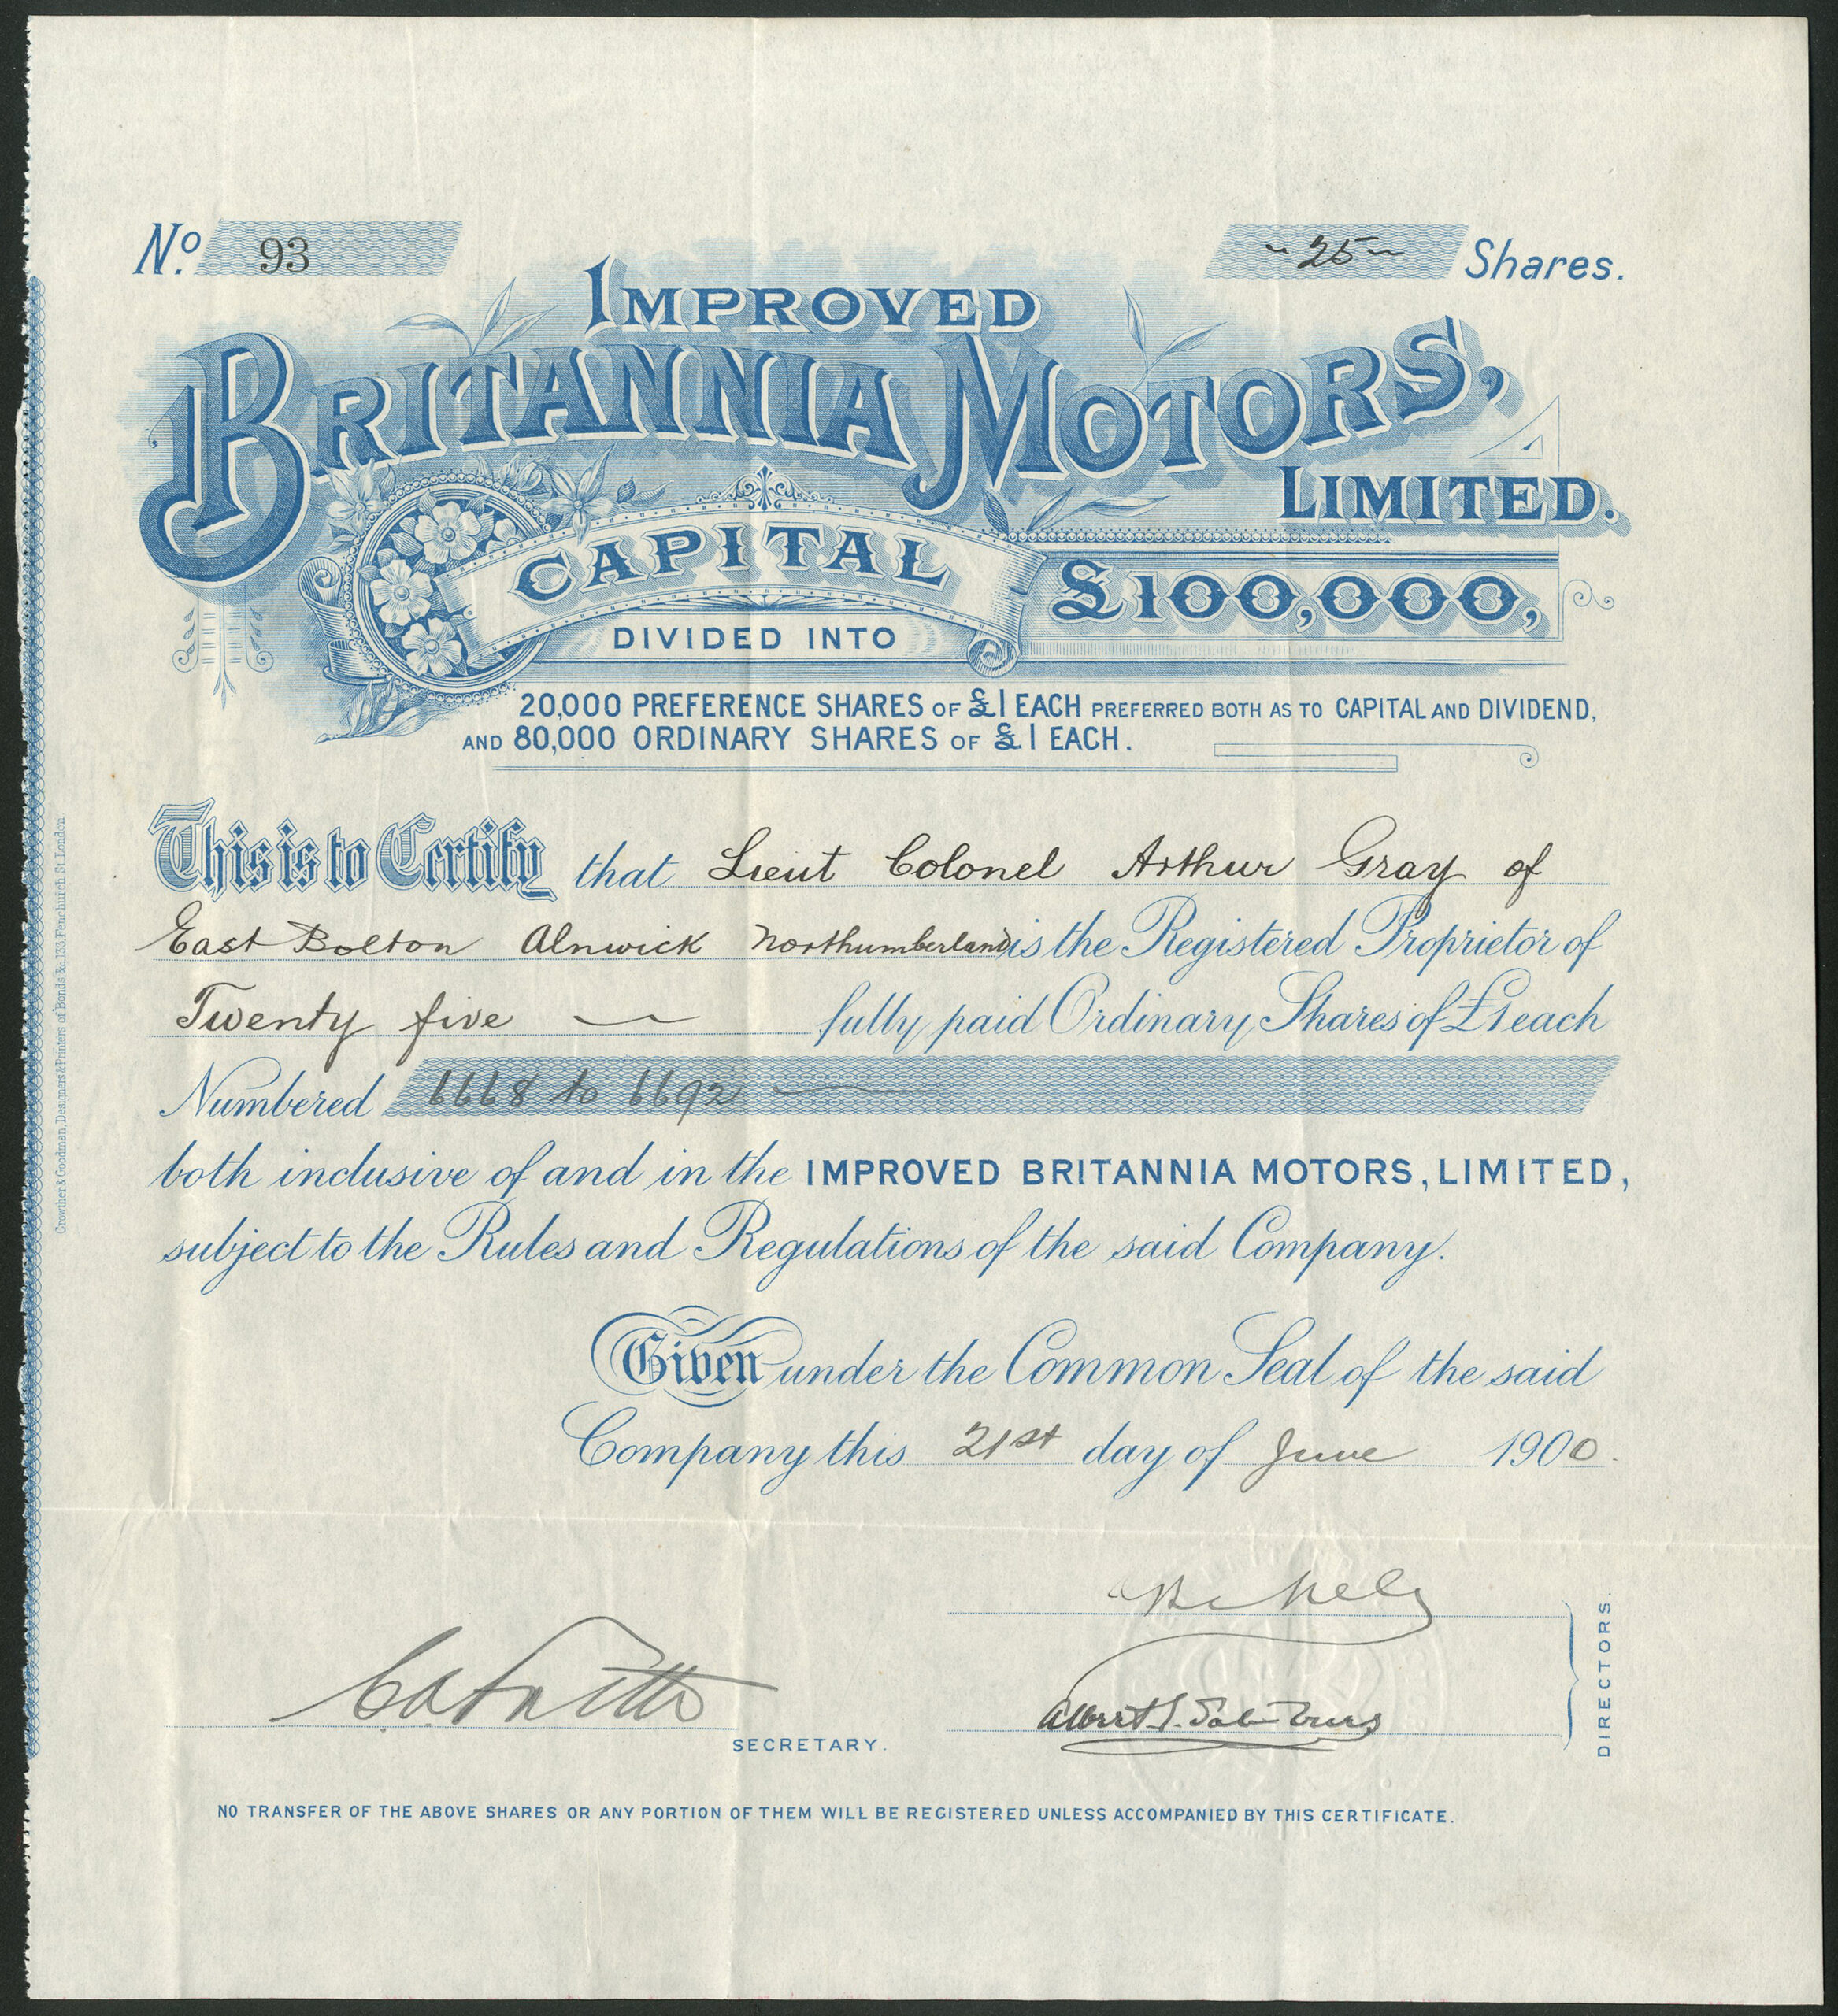 No. 93
25 Shares.
IMPROVED
BRITANNIA MOTORS,
LIMITED.
CAPITAL £100,000,
DIVIDED INTO
20,000 PREFERENCE SHARES OF £1 EACH PREFERRED BOTH AS TO CAPITAL AND DIVIDEND,
AND 80,000 ORDINARY SHARES OF £1 EACH.
This is to Certify that Lieut Colonel Arthur Gray of
East Bolton Alnwick Northumberland is the Registered Proprietor of
Twenty five — fully paid Ordinary Shares of £1 each
Numbered 6668 to 6692
both inclusive of and in the IMPROVED BRITANNIA MOTORS, LIMITED,
subject to the Rules and Regulations of the said Company.
Given under the Common Seal of the said
Company this 21st day of June 1900.
Albert
SECRETARY.
DIRECTORS.
NO TRANSFER OF THE ABOVE SHARES OR ANY PORTION OF THEM WILL BE REGISTERED UNLESS ACCOMPANIED BY THIS CERTIFICATE.
Crowther & Goodman, Designers & Printers of Bonds &c. 133, Fenchurch St. London